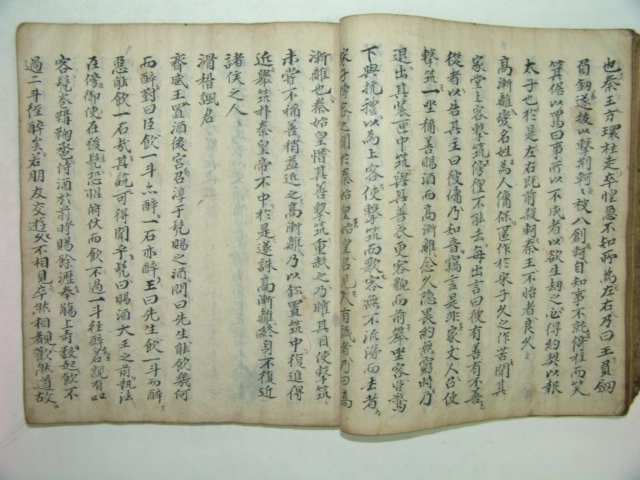 也秦王方環柱走卒惶急不知所為左右乃曰王負劒
負釼遂拔以擊荊軻軻被八創軻自知事不就倚柱而笑
箕倨以罵曰事所以不成者以欲生劫之必得約契以報
太子也於是左右既前殺軻秦王不怡者良久
高漸離變名姓為人傭保匿作於宋子久之作苦聞其
家堂上客擊筑傍徨不能去每出言曰彼有善有不善
從者以告其主曰彼傭乃知音竊言是非家丈人召使
擊筑一坐稱善賜酒而高漸離念久隱畏約無窮時乃
退出其裝匣中筑與其善衣更容貌而前舉坐客皆驚
下與抗禮以為上客使擊筑而歌客無不流涕而去者
宋子傳客之聞於秦始皇始皇召見人有識者乃曰高
漸離也秦始皇惜其善擊筑重赦之乃矐其目使擊筑
未嘗不稱善稍益近之高漸離乃以鉛置筑中復進得
近舉筑朴秦皇帝不中於是遂誅高漸離終身不復近
諸侯之人
滑稽諷名
齊威王置酒後宮召淳于髡賜之酒問曰先生能飲幾何
而醉對曰臣飲一斗亦醉一石亦醉王曰先生飲一斗而醉
惡能飲一石哉其說可得聞乎髡曰賜酒大王之前執法
在傍御使在後髡恐懼俯伏而飲不過一斗徑醉若親有
客髡帣韝鞠跽侍酒於前時賜餘瀝奉觴上壽數起飲不
過二斗徑醉矣若朋友交遊久不相見卒然相覩歡然道故